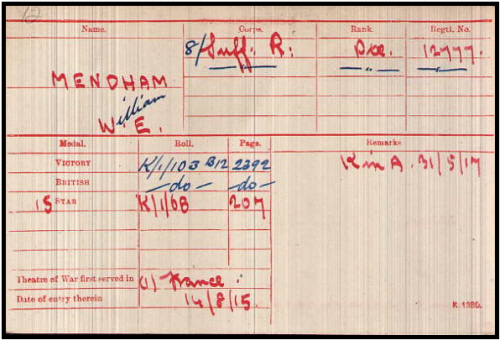 Name. Corps. Rank. Regtl. No.
8/Suff: R: Pte. 12777.
MENDHAM —"— —"— —"—
William
W. E.
Medal. Roll. Page. Remarks
VICTORY K/1/103 B12 2392 K in A. 31/5/17
BRITISH —do— —do—
15 STAR K/1/68 207
Theatre of War first served in (1) France :
Date of entry therein 14/8/15.
K. 1380.